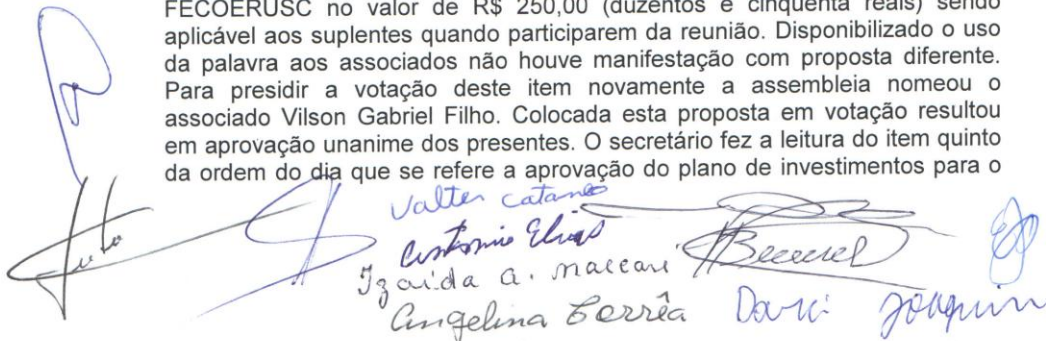 FECOERUSC no valor de R$ 250,00 (duzentos e cinquenta reais) sendo
aplicável aos suplentes quando participarem da reunião. Disponibilizado o uso
da palavra aos associados não houve manifestação com proposta diferente.
Para presidir a votação deste item novamente a assembleia nomeou o
associado Vilson Gabriel Filho. Colocada esta proposta em votação resultou
em aprovação unanime dos presentes. O secretário fez a leitura do item quinto
da ordem do dia que se refere a aprovação do plano de investimentos para o
Valter Cataneo
Antonio Elias
Izaida a. maccari
Angelina Corrêa Darci Joaquim